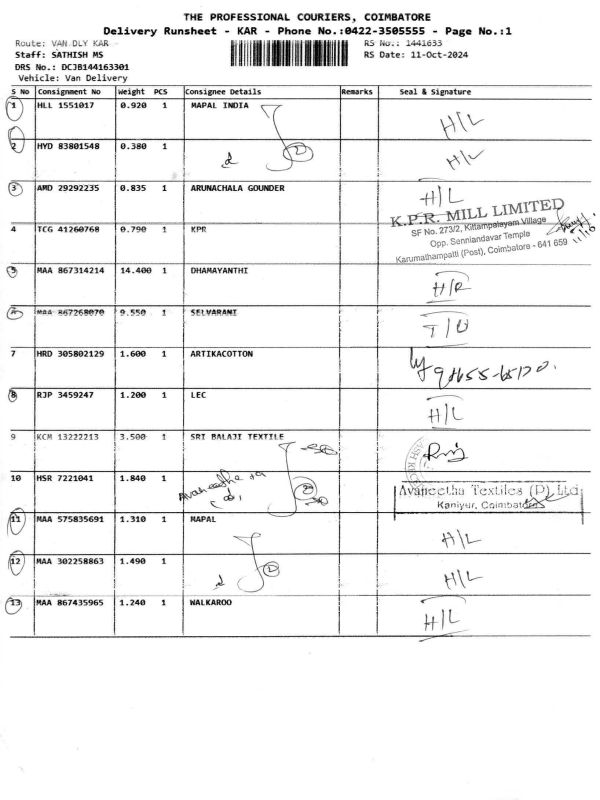 THE PROFESSIONAL COURIERS, COIMBATORE
Delivery Runsheet - KAR - Phone No.:0422-3505555 - Page No.:1
Route: VAN DLY KAR -
RS No.: 1441633
Staff: SATHISH MS
RS Date: 11-Oct-2024
DRS No.: DCJB144163301
Vehicle: Van Delivery
S No Consignment No Weight PCS Consignee Details Remarks Seal & Signature
1 HLL 1551017 0.920 1 MAPAL INDIA H/L
2 HYD 83801548 0.380 1 H/L
3 AMD 29292235 0.835 1 ARUNACHALA GOUNDER H/L
K.P.R. MILL LIMITED
SF No. 273/2, Kittampalayam Village
4 TCG 41260768 0.790 1 KPR
Opp. Senniandavar Temple
Karumathampatti (Post), Coimbatore - 641 659
5 MAA 867314214 14.400 1 DHAMAYANTHI H/R
6 MAA 867268070 9.550 1 SELVARANI T/O
7 HRD 305802129 1.600 1 ARTIKACOTTON
8 RJP 3459247 1.200 1 LEC H/L
9 KCM 13222213 3.500 1 SRI BALAJI TEXTILE
10 HSR 7221041 1.840 1
Avaneetha Textiles (P) Ltd
Kaniyur, Coimbatore
11 MAA 575835691 1.310 1 MAPAL H/L
12 MAA 302258863 1.490 1 H/L
13 MAA 867435965 1.240 1 WALKAROO H/L